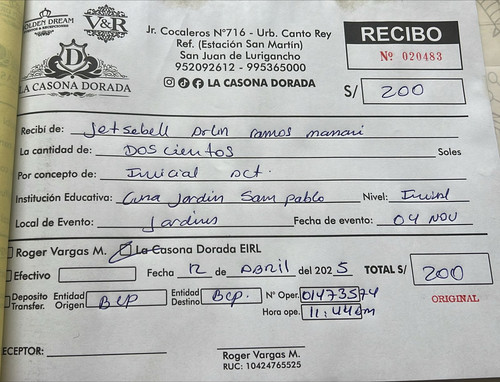 GOLDEN DREAM
V&R
D
LA CASONA DORADA
Jr. Cocaleros N°716 - Urb. Canto Rey
Ref. (Estación San Martín)
San Juan de Lurigancho
952092612 - 995365000
LA CASONA DORADA
RECIBO
Nº 020483
S/ 200
Recibí de: Jetsabell Arlin ramos mamani
La cantidad de: Doscientos Soles
Por concepto de: Inicial oct.
Institución Educativa: Cuna Jardin San pablo Nivel: Inicial
Local de Evento: Jardines Fecha de evento: 04 NOV
Roger Vargas M. La Casona Dorada EIRL
Efectivo Fecha 12 de ABRIL del 2025 TOTAL S/ 200
Deposito Transfer. Entidad Origen BCP Entidad Destino BCP. N° Oper. 01473574
Hora ope. 11:44am
ORIGINAL
ECEPTOR:
Roger Vargas M.
RUC: 10424765525